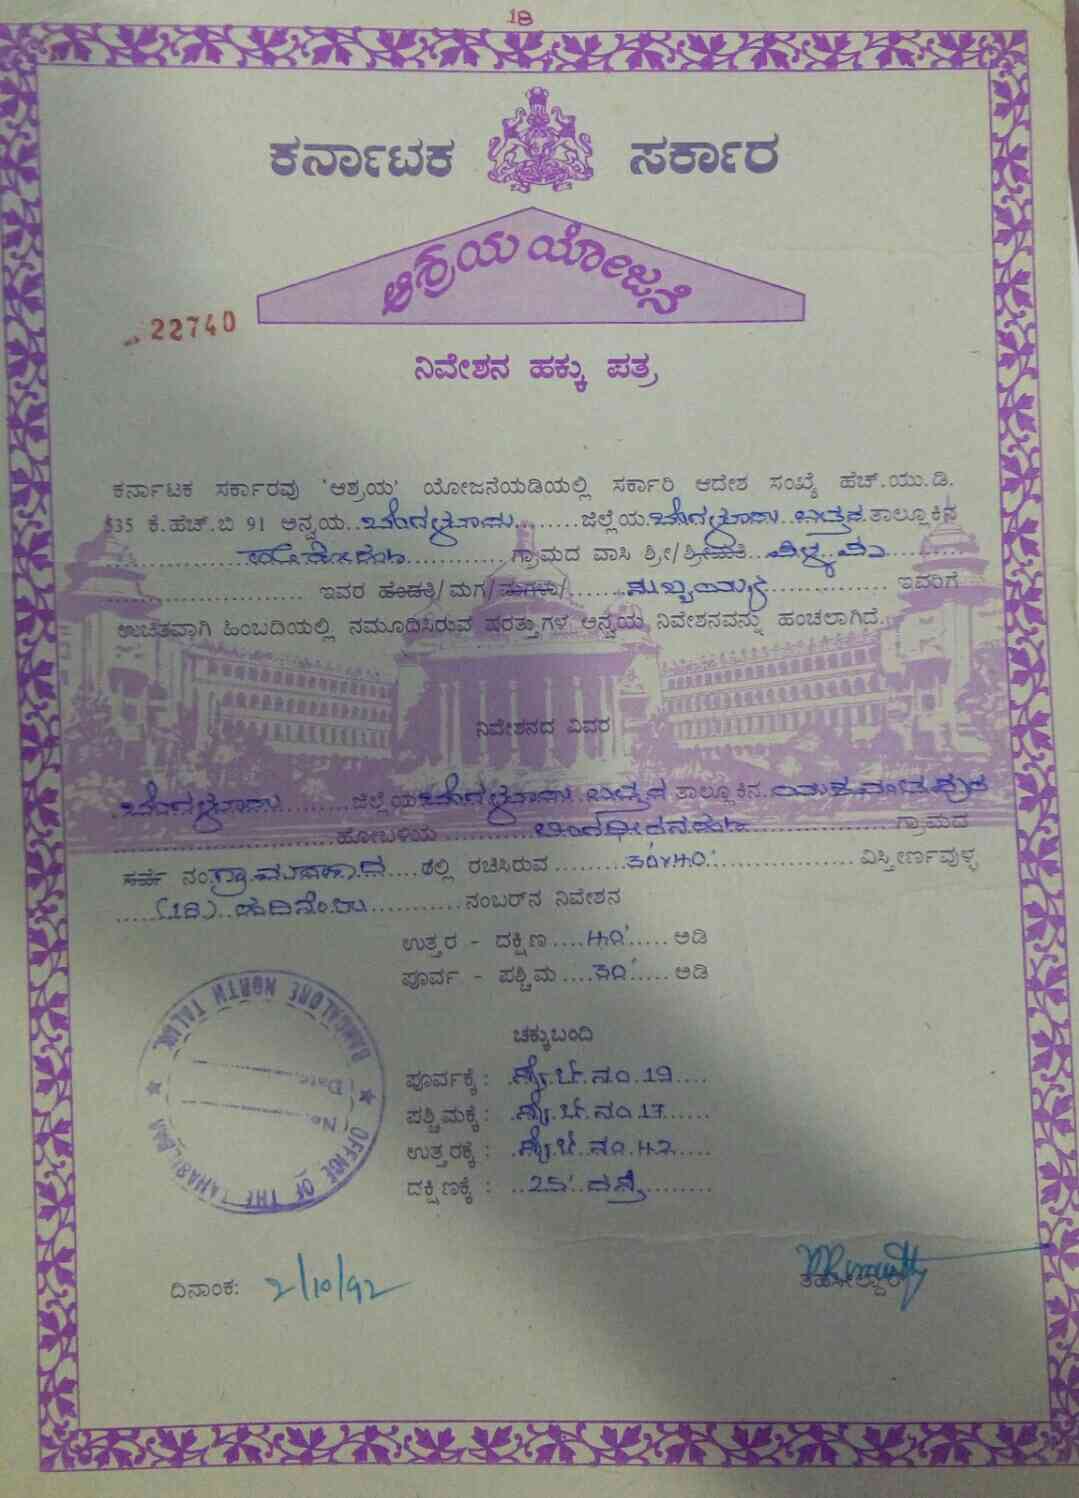 18
ಕರ್ನಾಟಕ ಸರ್ಕಾರ
ಆಶ್ರಯ ಯೋಜನೆ
22740
ನಿವೇಶನ ಹಕ್ಕು ಪತ್ರ
ಕರ್ನಾಟಕ ಸರ್ಕಾರವು 'ಆಶ್ರಯ' ಯೋಜನೆಯಡಿಯಲ್ಲಿ ಸರ್ಕಾರಿ ಆದೇಶ ಸಂಖ್ಯೆ ಹೆಚ್.ಯು.ಡಿ.
535 ಕೆ.ಹೆಚ್.ಬಿ 91 ಅನ್ವಯ ಬೆಂಗಳೂರು ಜಿಲ್ಲೆಯ ಬೆಂಗಳೂರು ಉತ್ತರ ತಾಲ್ಲೂಕಿನ
ಗ್ರಾಮದ ವಾಸಿ ಶ್ರೀ/ಶ್ರೀಮತಿ
ಇವರ ಹೆಂಡತಿ/ಮಗ/ಮಗಳು/ ಇವರಿಗೆ
ಉಚಿತವಾಗಿ ಹಿಂಬದಿಯಲ್ಲಿ ನಮೂದಿಸಿರುವ ಷರತ್ತುಗಳ ಅನ್ವಯ ನಿವೇಶನವನ್ನು ಹಂಚಲಾಗಿದೆ.
ನಿವೇಶನದ ವಿವರ
ಬೆಂಗಳೂರು ಜಿಲ್ಲೆಯ ಬೆಂಗಳೂರು ಉತ್ತರ ತಾಲ್ಲೂಕಿನ ಯಶವಂತಪುರ
ಹೋಬಳಿಯ ಗ್ರಾಮದ
ಸರ್ವೆ ನಂ. ಗ್ರಾಮಠಾಣ ರಲ್ಲಿ ರಚಿಸಿರುವ 30x40 ವಿಸ್ತೀರ್ಣವುಳ್ಳ
(18) ಹದಿನೆಂಟು ನಂಬರ್‌ನ ನಿವೇಶನ
ಉತ್ತರ - ದಕ್ಷಿಣ 40' ಅಡಿ
ಪೂರ್ವ - ಪಶ್ಚಿಮ 30' ಅಡಿ
ಚಕ್ಕುಬಂದಿ
ಪೂರ್ವಕ್ಕೆ : ಸೈಟ್ ನಂ. 19
ಪಶ್ಚಿಮಕ್ಕೆ : ಸೈಟ್ ನಂ 17
ಉತ್ತರಕ್ಕೆ : ಸೈಟ್ ನಂ. 42
ದಕ್ಷಿಣಕ್ಕೆ : 25' ರಸ್ತೆ
OFFICE OF THE TAHASILDAR
BANGALORE NORTH TALUK
No.
Date
ದಿನಾಂಕ: 2/10/92
ತಹಸೀಲ್ದಾರ್